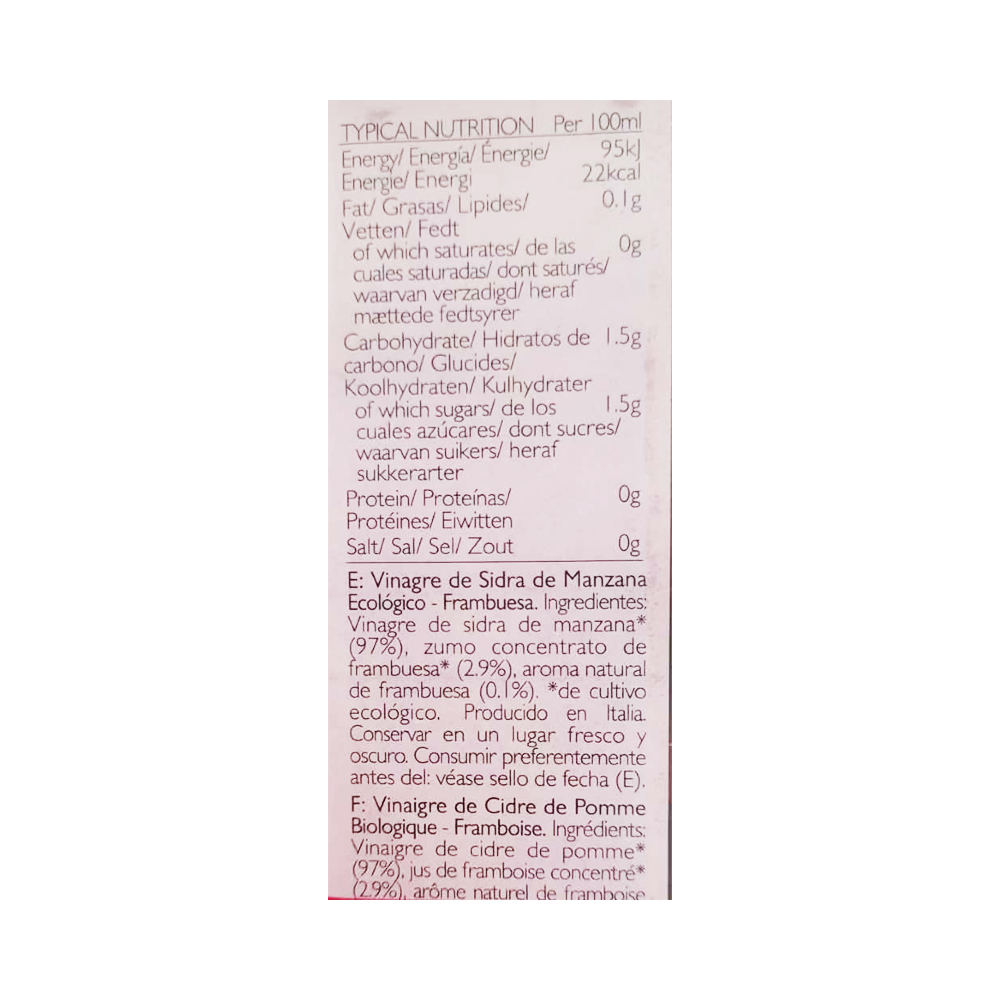 TYPICAL NUTRITION Per 100ml
Energy/ Energía/ Énergie/ 95kJ
Energie/ Energi 22kcal
Fat/ Grasas/ Lipides/ 0.1g
Vetten/ Fedt
of which saturates/ de las 0g
cuales saturadas/ dont saturés/
waarvan verzadigd/ heraf
mættede fedtsyrer
Carbohydrate/ Hidratos de 1.5g
carbono/ Glucides/
Koolhydraten/ Kulhydrater
of which sugars/ de los 1.5g
cuales azúcares/ dont sucres/
waarvan suikers/ heraf
sukkerarter
Protein/ Proteínas/ 0g
Protéines/ Eiwitten
Salt/ Sal/ Sel/ Zout 0g
E: Vinagre de Sidra de Manzana
Ecológico - Frambuesa. Ingredientes:
Vinagre de sidra de manzana*
(97%), zumo concentrato de
frambuesa* (2.9%), aroma natural
de frambuesa (0.1%). *de cultivo
ecológico. Producido en Italia.
Conservar en un lugar fresco y
oscuro. Consumir preferentemente
antes del: véase sello de fecha (E).
F: Vinaigre de Cidre de Pomme
Biologique - Framboise. Ingrédients:
Vinaigre de cidre de pomme*
(97%), jus de framboise concentré*
(2.9%), arôme naturel de framboise